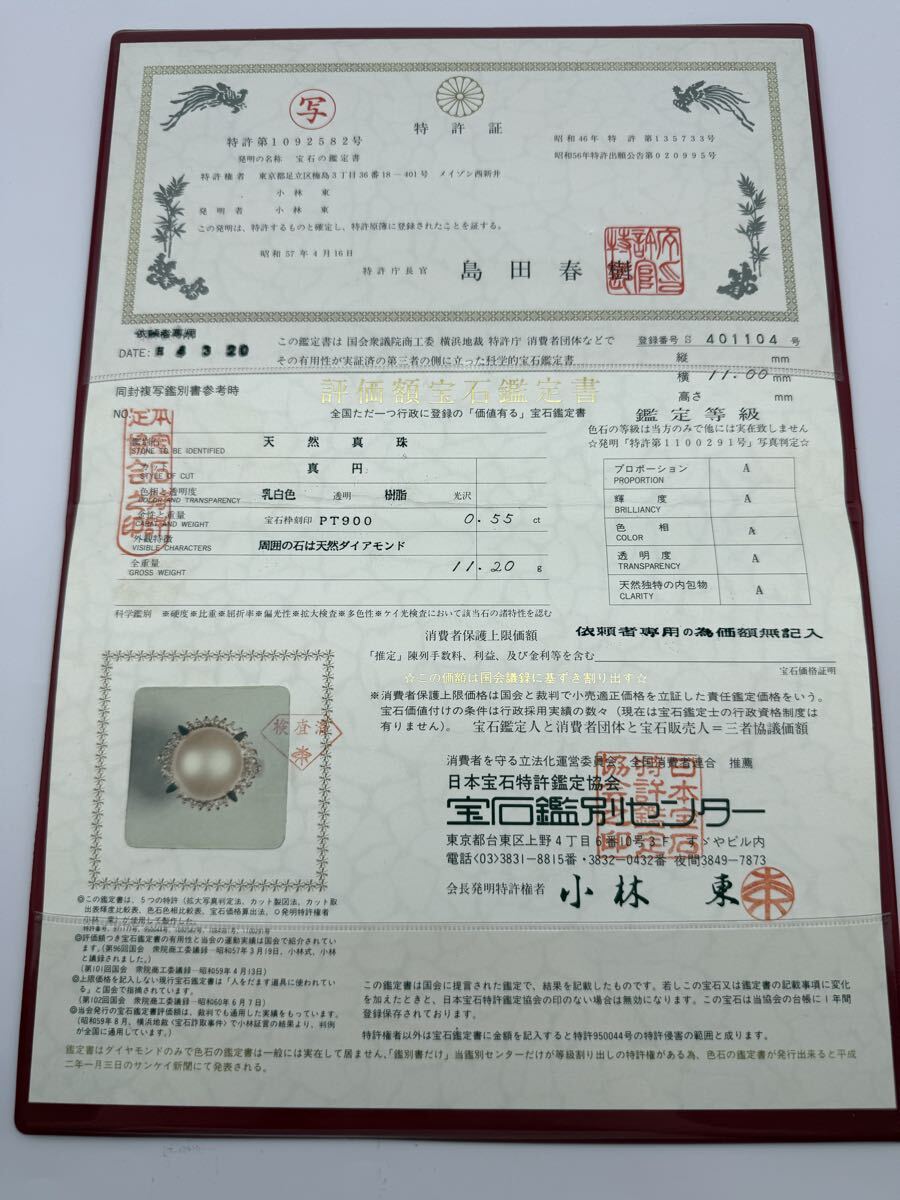 写
特許証
特許第1092582号
昭和46年 特許 第135733号
発明の名称 宝石の鑑定書
昭和56年特許出願公告第020995号
特許権者 東京都足立区梅島3丁目36番18-401号 メイゾン西新井
小林 東
発明者 小林 東
この発明は、特許するものと確定し、特許原簿に登録されたことを証する。
昭和57年4月16日
特許庁長官 島田春樹
依頼者専用
DATE: H 4 3 20
この鑑定書は 国会衆議院商工委 横浜地裁 特許庁 消費者団体などで
その有用性が実証済の第三者の側に立った科学的宝石鑑定書
登録番号 S 401104 号
縦 mm
横 11.00 mm
高さ mm
同封複写鑑別書参考時
評価額宝石鑑定書
NO.
全国ただ一つ行政に登録の「価値有る」宝石鑑定書
鑑定等級
色石の等級は当方のみで他には実在致しません
☆発明「特許第1100291号」写真判定☆
鑑別石 天然真珠
STONE TO BE IDENTIFIED
カット 真円
STYLE OF CUT
色相と透明度 乳白色 透明 樹脂 光沢
COLOR AND TRANSPARENCY
宝石枠刻印 PT900 0.55 ct
CARAT AND WEIGHT
外観特徴 周囲の石は天然ダイアモンド
VISIBLE CHARACTERS
全重量 11.20 g
GROSS WEIGHT
プロポーション A
PROPORTION
輝度 A
BRILLIANCY
色相 A
COLOR
透明度 A
TRANSPARENCY
天然独特の内包物 A
CLARITY
科学鑑別 ※硬度※比重※屈折率※偏光性※拡大検査※多色性※ケイ光検査において該当石の諸特性を認む
消費者保護上限価額 依頼者専用の為価額無記入
「推定」陳列手数料、利益、及び金利等を含む
宝石価格証明
☆この価額は国会議録に基ずき割り出す☆
※消費者保護上限価格は国会と裁判で小売適正価格を立証した責任鑑定価格をいう。
宝石価値付けの条件は行政採用実績の数々(現在は宝石鑑定士の行政資格制度は
有りません)。 宝石鑑定人と消費者団体と宝石販売人=三者協議価額
検査済
消費者を守る立法化運営委員会 全国消費者連合 推薦
日本宝石特許鑑定協会
宝石鑑別センター
日本宝石特許鑑定協会之印
東京都台東区上野4丁目6番10号3F すゞやビル内
電話〈03〉3831-8815番・3832-0432番 夜間3849-7873
会長発明特許権者 小林 東
◎この鑑定書は、5つの特許(拡大写真判定法、カット製図法、カット取
出表輝度比較表、色石色相比較表、宝石価格算出法、○発明特許権者
小林 東)が使用して製作した。
◎評価額つき宝石鑑定書の有用性と当会の運動実績は国会で紹介されてい
ます。(第96回国会 衆院商工委議録—昭和57年3月19日、小林式、小林
と議録されました。)
(第101回国会 衆院商工委議録—昭和59年4月13日)
◎上限価格を記入しない現行宝石鑑定書は「人をだます道具に使われてい
る」と国会で指摘されています。
(第102回国会 衆院商工委議録—昭和60年6月7日)
◎当会発行の宝石鑑定書評価額は、裁判でも適用した実績をもっています。
(昭和59年8月、横浜地裁〈宝石詐取事件〉で小林証言の結果より、判例
が全国に通用しています。)
この鑑定書は国会に提言された鑑定で、結果を記載したものです。若しこの宝石又は鑑定書の記載事項に変化
を加えたときと、日本宝石特許鑑定協会の印のない場合は無効になります。この宝石は当協会の台帳に1年間
登録保存されております。
特許権者以外は宝石鑑定書に金額を記入すると特許950044号の特許侵害の範囲と成ります。
鑑定書はダイヤモンドのみで色石の鑑定書は一般には実在して居ません。「鑑別書だけ」当鑑別センターだけが等級割り出しの特許権がある為、色石の鑑定書が発行出来ると平成
二年一月三日のサンケイ新聞にて発表される。